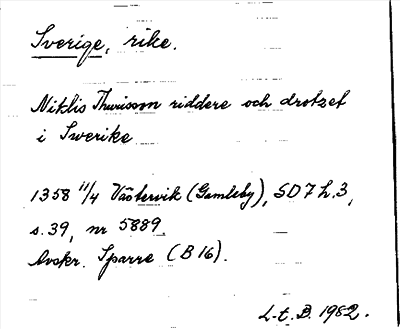 Sverige, rike.
Niklis Thurisson riddere och drotzet
i Swerike
1358 11/4 Västervik (Gamleby), SD 7 h. 3,
s. 39, nr 5889.
Avskr. Sparre (B 16).
L.t.B. 1982.